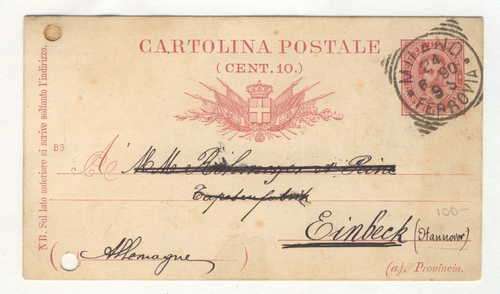 CARTOLINA POSTALE
(CENT. 10.)
MILANO
FERROVIA
NB. Sul lato anteriore si scrive soltanto l'indirizzo.
89
A M.M.
Tapetenfabrik
Einbeck (Hannover)
(Allemagne)
(a). Provincia.
100-